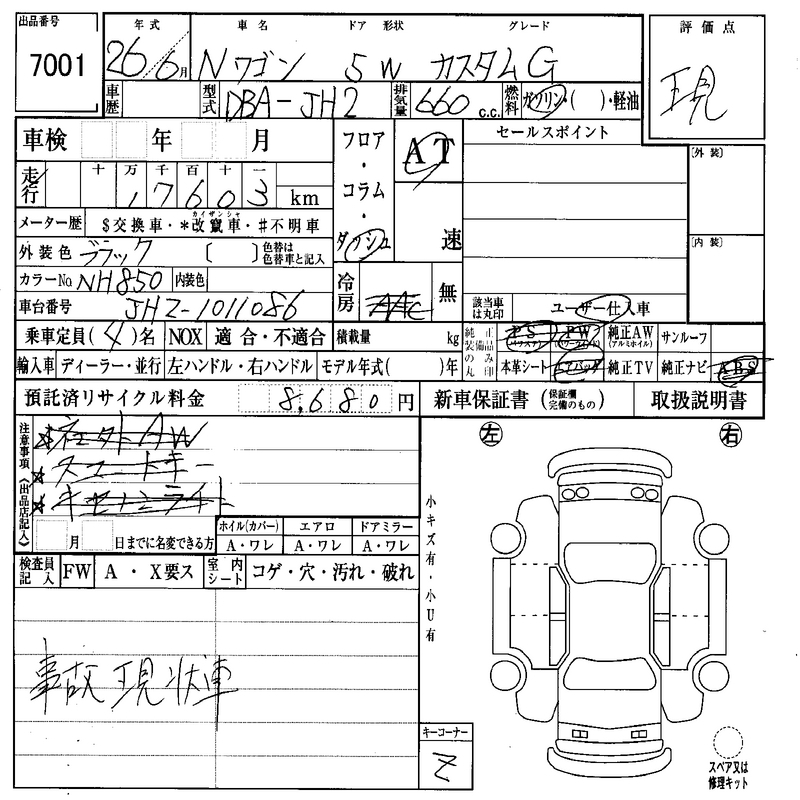 出品番号
7001
年式 車名 ドア 形状 グレード
26/6月 Nワゴン 5 W カスタムG
評価点
現
車歴 型式 DBA-JH2 排気量 660 c.c. 燃料 ガソリン・( )・軽油
車検 年 月
フロア・コラム・ダッシュ
AT
速
セールスポイント
[外装]
走行 十 万 千 百 十 一
17603 km
メーター歴 $交換車・*改竄車・#不明車
カイザンシャ
[内装]
外装色 ブラック ( ) 色替は色替車と記入
カラーNo NH850 内装色
冷房 AAC 無
車台番号 JH2-1011086
該当車は丸印 ユーザー仕入車
乗車定員(4)名 NOX 適合・不適合 積載量 kg
純正装備品のみ丸印
PS (パワステ) PW (パワーウインド) 純正AW (アルミホイル) サンルーフ
輸入車 ディーラー・並行 左ハンドル・右ハンドル モデル年式( )年
本革シート エアバッグ 純正TV 純正ナビ ABS
預託済リサイクル料金 8,680円 新車保証書 (保証欄完備のもの) 取扱説明書
注意事項《出品店記入》
☆スマートキー
月 日までに名変できる方
ホイル(カバー) エアロ ドアミラー
A・ワレ A・ワレ A・ワレ
検査員記入 FW A・X要ス 室内シート コゲ・穴・汚れ・破れ
事故現状車
小キズ有・小U有
左 右
キーコーナー
Z
スペア又は
修理キット